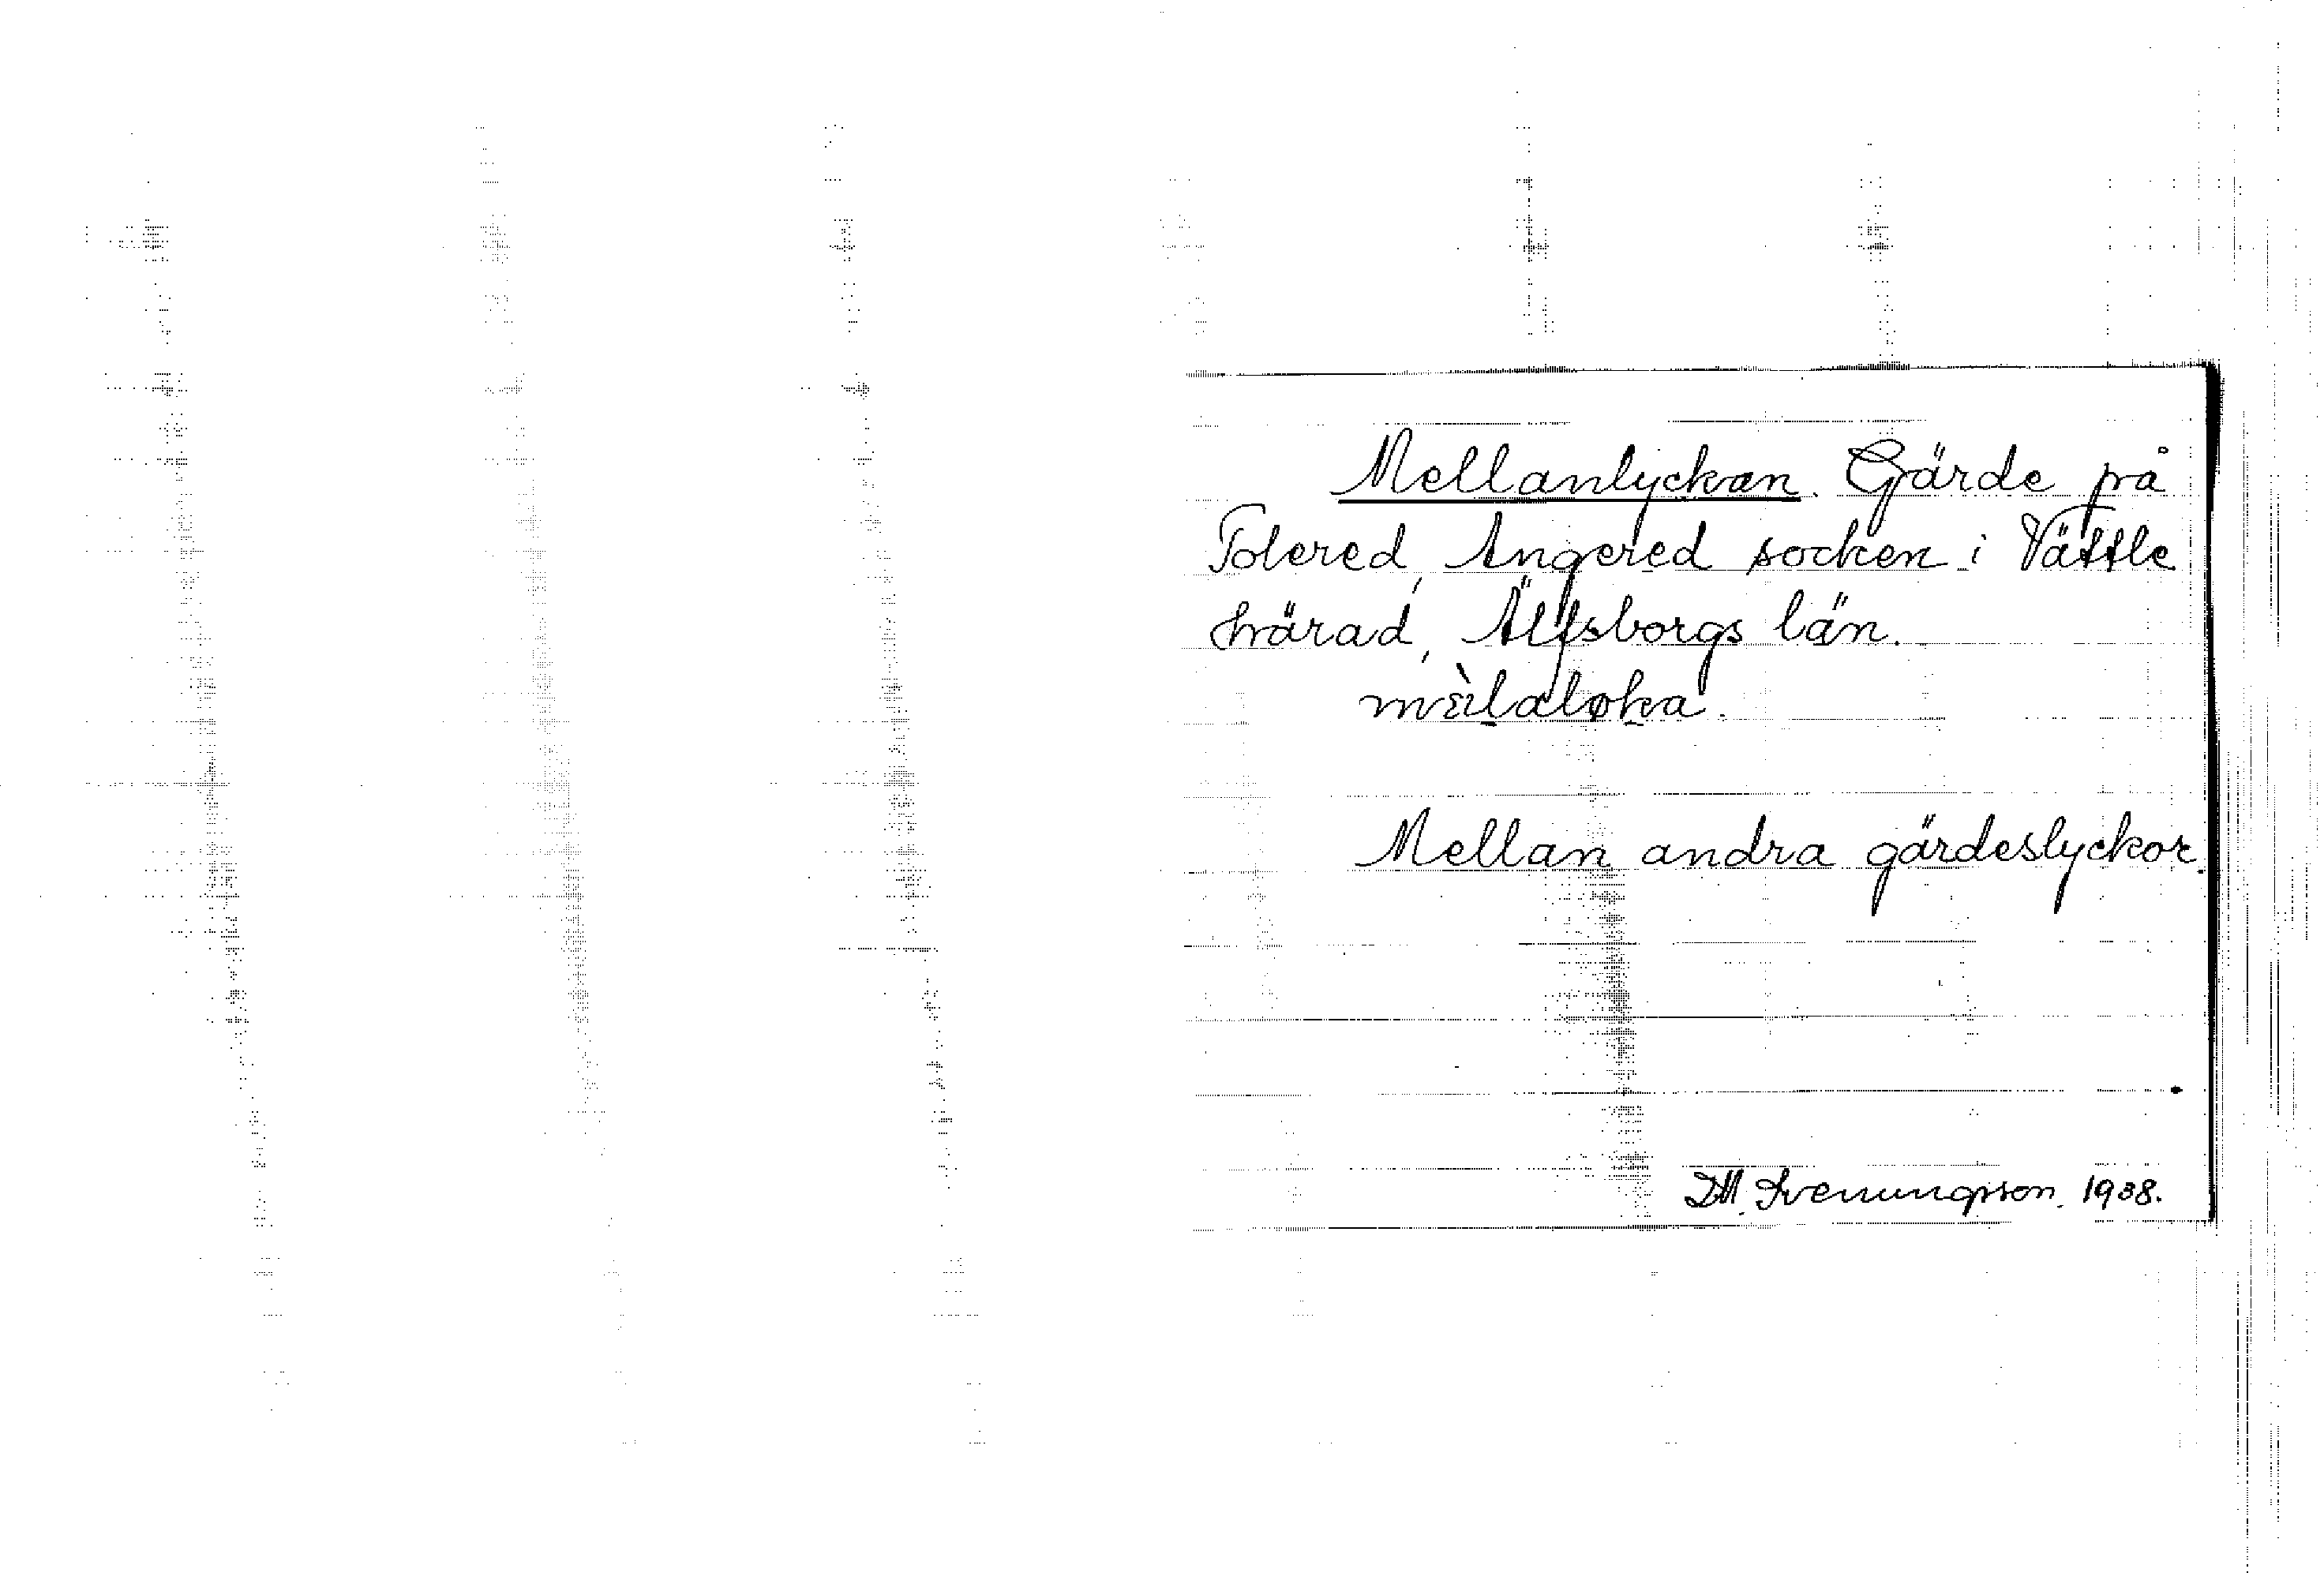 Mellanlyckan. Gärde på
Tolered, Angered socken i Vättle
härad, Älfsborgs län.
mèlaløka.
Mellan andra gärdeslyckor.
D.M. Svenungsson. 1938.